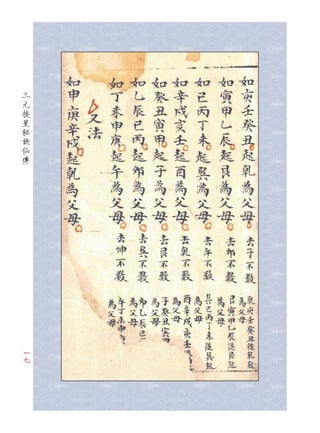 如亥壬癸丑起乾為父母 去子不数 乾亥壬癸丑從乾起為父母
如寅甲乙辰起艮為父母 去卯不数 艮寅甲乙辰従艮起為父母
如己丙丁未起巽為父母 去午不数 巽己丙丁未従巽起為父母
如辛戌亥壬起酉為父母 去乾不数 酉辛戌亥壬為父母
如癸丑寅甲起子為父母 去艮不数 子癸丑寅為父母
如乙辰己丙起卯為父母 去巽不数 卯乙辰己為父母
如丁未申庚起午為父母 去坤不数 午丁未申為父母
又法
如申庚辛戌起乾為父母
三元挨星秘訣仙傳
一七